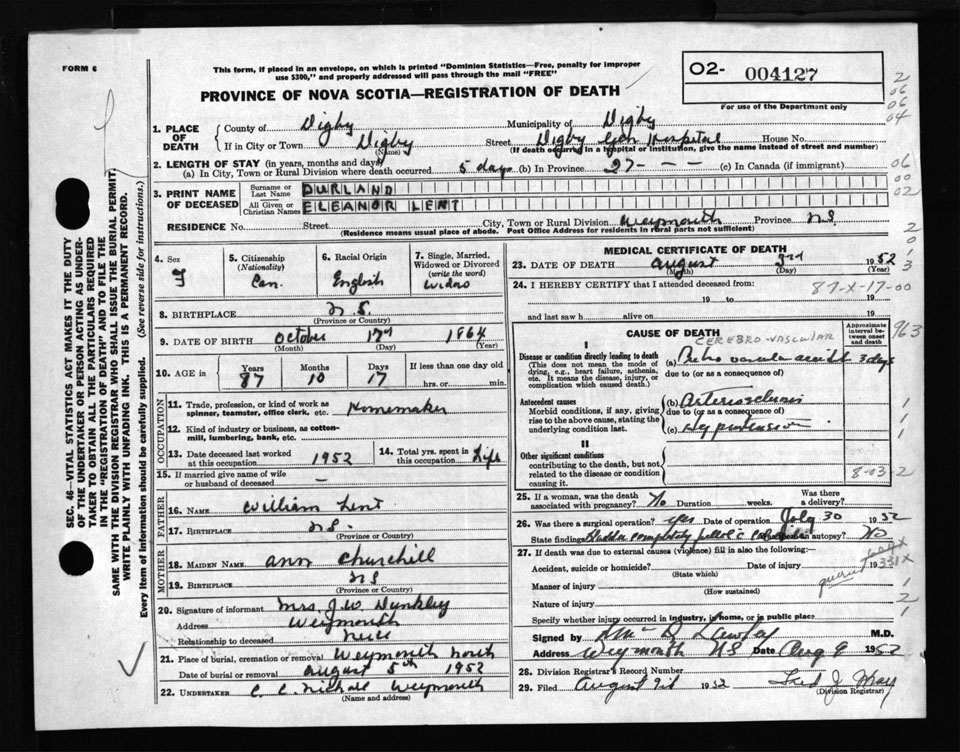 FORM 6
This form, if placed in an envelope, on which is printed "Dominion Statistics—Free, penalty for improper
use $300," and properly addressed will pass through the mail "FREE"
PROVINCE OF NOVA SCOTIA—REGISTRATION OF DEATH
02- 004127
For use of the Department only
2
06
06
04
06
00
02
SEC. 46—VITAL STATISTICS ACT MAKES IT THE DUTY
OF THE UNDERTAKER OR PERSON ACTING AS UNDER-
TAKER TO OBTAIN ALL THE PARTICULARS REQUIRED
IN THE "REGISTRATION OF DEATH" AND TO FILE THE
SAME WITH THE DIVISION REGISTRAR WHO SHALL ISSUE THE BURIAL PERMIT.
WRITE PLAINLY WITH UNFADING INK. THIS IS A PERMANENT RECORD.
Every item of information should be carefully supplied. (See reverse side for instructions.)
1. PLACE OF DEATH
County of Digby Municipality of Digby
If in City or Town Digby Street Digby Gen Hospital House No.
(Name) (If death occurred in a hospital or institution, give the name instead of street and number)
2. LENGTH OF STAY (in years, months and days)
(a) In City, Town or Rural Division where death occurred 5 days (b) In Province 27 - - - (c) In Canada (if immigrant)
3. PRINT NAME OF DECEASED
Surname or Last Name DURLAND
All Given or Christian Names ELEANOR LENT
RESIDENCE No. Street City, Town or Rural Division Weymouth Province N.S
(Residence means usual place of abode. Post Office Address for residents in rural parts not sufficient)
4. Sex F
5. Citizenship (Nationality) Can.
6. Racial Origin English
7. Single, Married, Widowed or Divorced (write the word) Widow
8. BIRTHPLACE N.S.
(Province or Country)
9. DATE OF BIRTH October 17 1864
(Month) (Day) (Year)
10. AGE in Years 87 Months 10 Days 17 If less than one day old
hrs. or min.
OCCUPATION
11. Trade, profession, or kind of work as spinner, teamster, office clerk, etc. Homemaker
12. Kind of industry or business, as cotton-mill, lumbering, bank, etc.
13. Date deceased last worked at this occupation 1952
14. Total yrs. spent in this occupation Life
15. If married give name of wife or husband of deceased —
FATHER
16. NAME William Lent
17. BIRTHPLACE N.S.
(Province or Country)
MOTHER
18. MAIDEN NAME Ann Churchill
19. BIRTHPLACE N S
(Province or Country)
20. Signature of informant Mrs. J. W. Dunkley
Address Weymouth
Relationship to deceased
21. Place of burial, cremation or removal Weymouth North
Date of burial or removal August 5th 1952
22. UNDERTAKER C. C. Nichall Weymouth
(Name and address)
MEDICAL CERTIFICATE OF DEATH
23. DATE OF DEATH August 3rd 1952
(Month) (Day) (Year)
24. I HEREBY CERTIFY that I attended deceased from:
87-X-17-00
19 to 19
and last saw h alive on 19
CAUSE OF DEATH
Approximate interval between onset and death
963
CEREBRO-VASCULAR
I
Disease or condition directly leading to death (a) vascular accident 3 days
(This does not mean the mode of dying, e.g., heart failure, asthenia, etc. It means the disease, injury, or complication which caused death.)
due to (or as a consequence of)
Antecedent causes
Morbid conditions, if any, giving rise to the above cause, stating the underlying condition last.
(b) Arteriosclerosis
due to (or as a consequence of)
(c) Hypertension
II
Other significant conditions
contributing to the death, but not related to the disease or condition causing it.
8-03-2
25. If a woman, was the death associated with pregnancy? No Duration weeks. Was there a delivery?
26. Was there a surgical operation? yes Date of operation July 30 1952
State findings completely autopsy? No
27. If death was due to external causes (violence) fill in also the following:
Accident, suicide or homicide? Date of injury 19
(State which)
331X
Manner of injury
(How sustained)
Nature of injury
Specify whether injury occurred in industry, in home, or in public place
Signed by M.D.
Address Weymouth N.S Date Aug 9 1952
28. Division Registrar's Record Number
29. Filed August 9th 1952 Fred J. May
(Division Registrar)